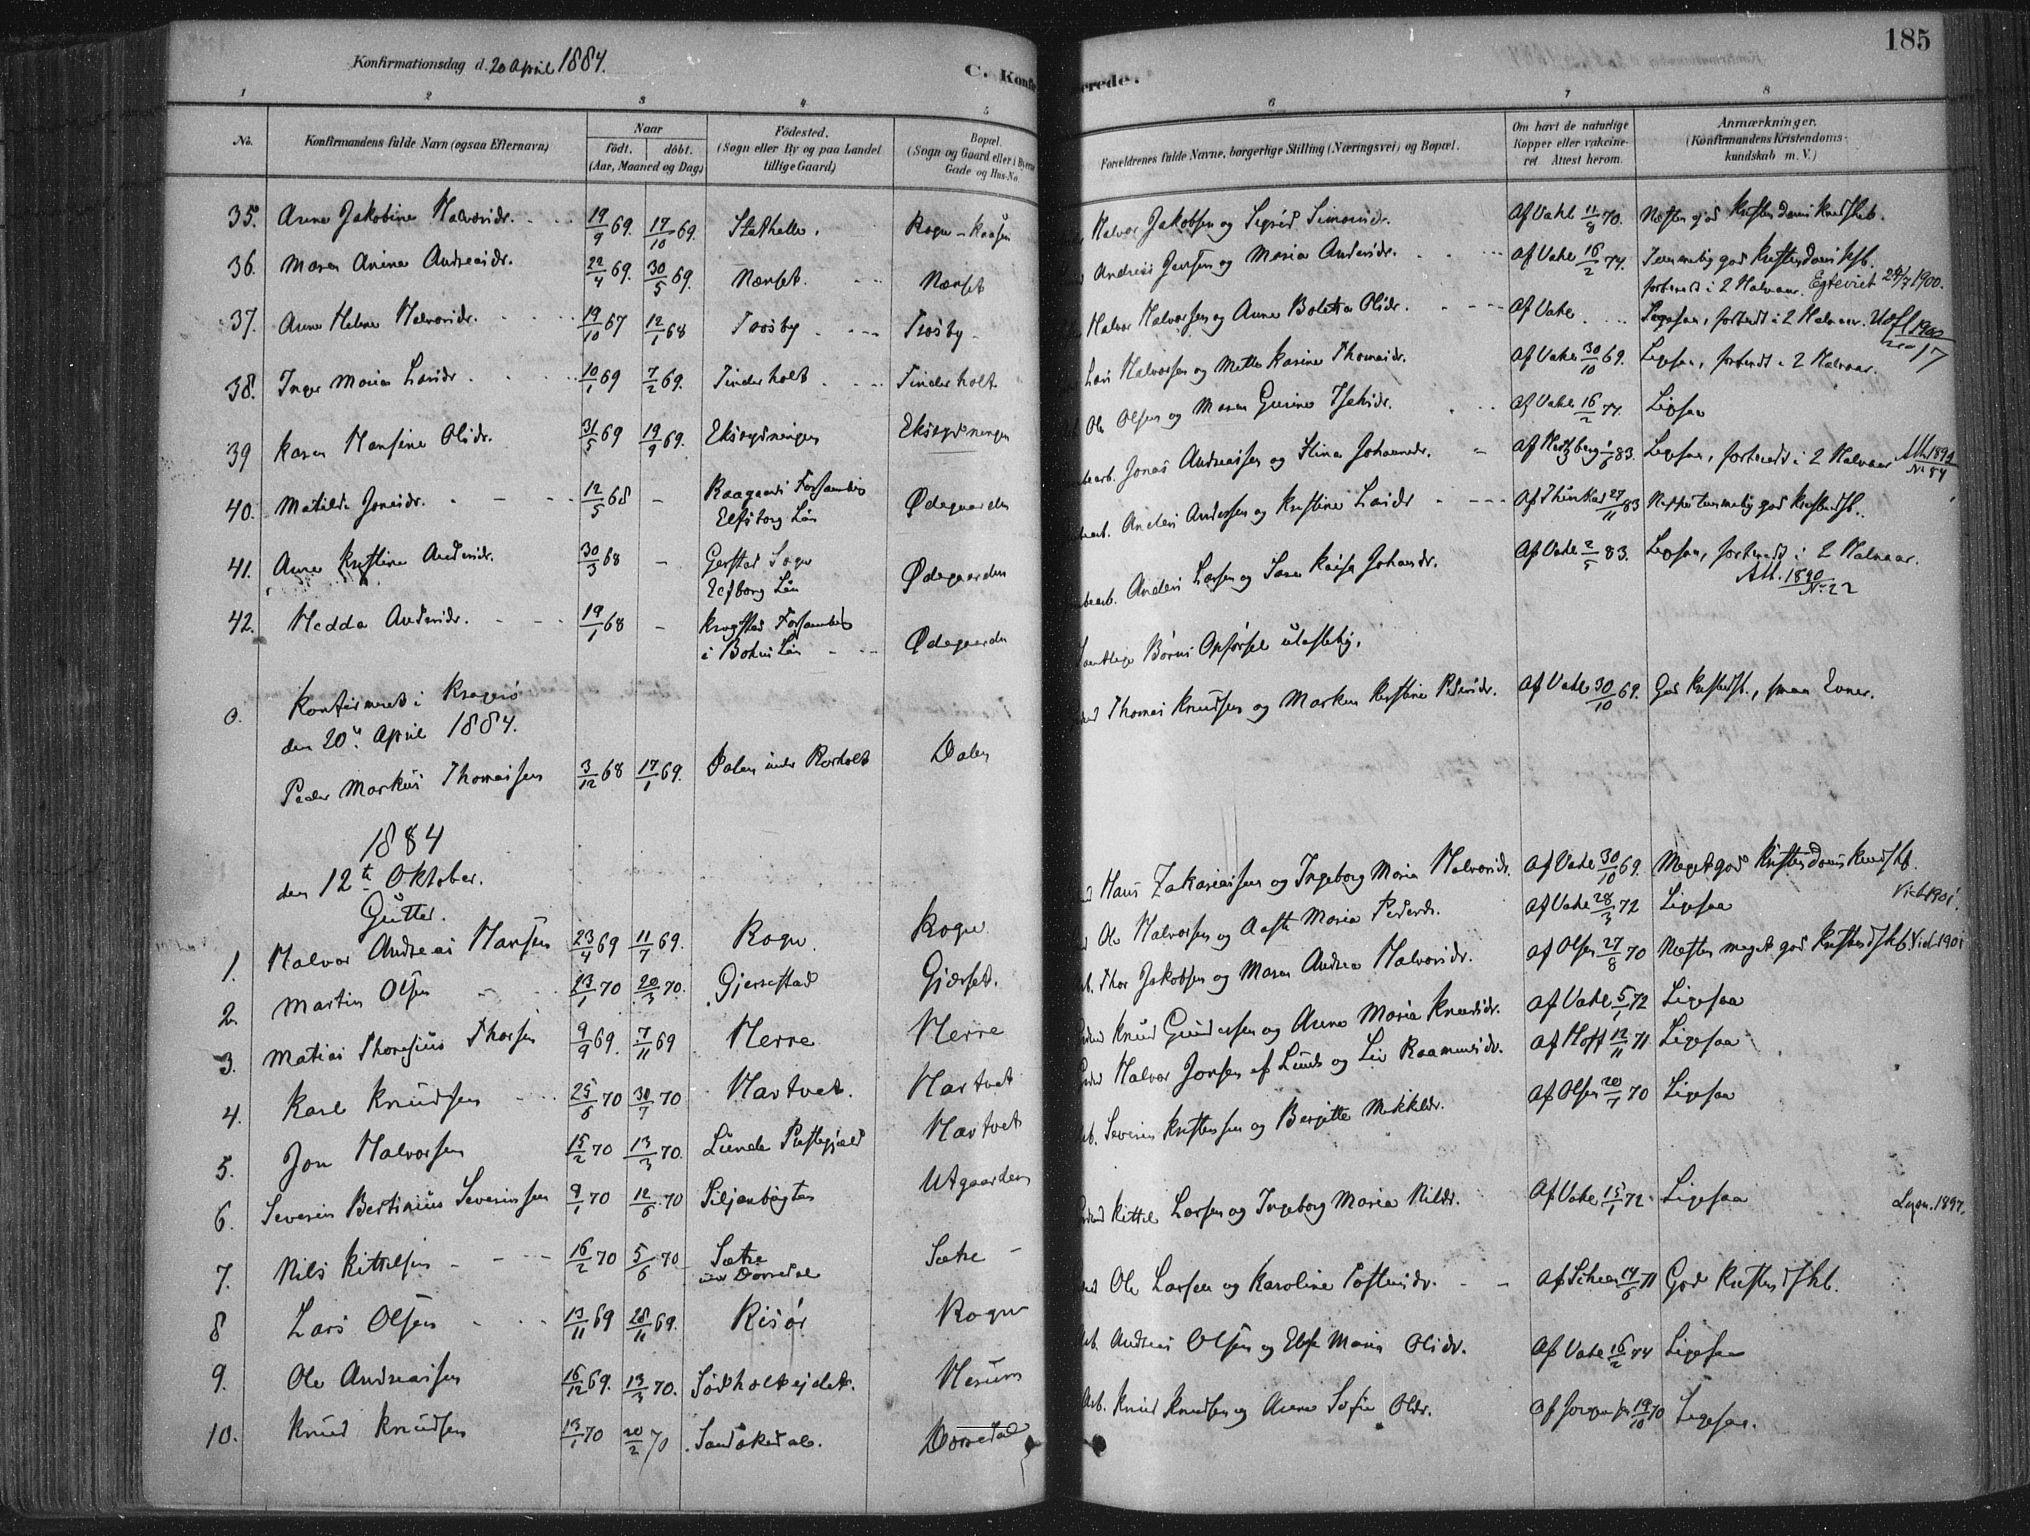 Konfirmationsdag d. 20 April 1884.
C. Konfirmerede.
185
1 2 3 4 5 6 7 8
No.
Konfirmandens fulde Navn (ogsaa Efternavn)
Naar
født. døbt.
(Aar, Maaned og Dag)
Fødested.
(Sogn eller By og paa Landet
tillige Gaard)
Bopæl.
(Sogn og Gaard eller i Byerne
Gade og Hus-No
Forældrenes fulde Navne, borgerlige Stilling (Næringsvei) og Bopæl.
Om havt de naturlige
Kopper eller vakcine-
ret Attest herom.
Anmærkninger.
(Konfirmandens Kristendoms-
kundskab m. V.)
35. Anne Jakobine Halvorsdr. 19/9 69. 17/10 69. Stathelle. Rogn - Kaasen Halvor Jakobsen og Sigrid Simonsdr. Af Vahl 11/8 70. Næsten god Kristendomskundskb.
36. Maren Anine Andreasdr. 22/4 69. 30/5 69. Nænset. Nænset Andreas Jensen og Maria Andersdr. Af Vahl 16/2 74. Temmelig god Kristendomskb.
forberedt i 2 Halvaar. Egteviet 24/7 1900.
37. Anne Helene Halvorsdr. 19/10 67 12/1 68 Trosby Trosby Halvor Halvorsen og Anne Boletta Olsdr. Af Vahl Ligesaa, forberedt i 2 Halvaar. Udfl 1902
No 17
38. Inger Maria Larsdr. 10/1 69 7/2 69. Tinderholt Tinderholt Lars Halvorsen og Mette Karine Thomasdr. Af Vahl 30/10 69. Ligesaa, forberedt i 2 Halvaar.
39 Karen Hansine Olsdr. 31/5 69 19/9 69. Eksergsningen Eksergsningen Ole Olsen og Maren Gurine Isaksdr. Af Vahl 16/2 77. Ligesaa
40. Matilde Jonasdr. 12/5 68 - Raagaards Forsamling
Elfsborg Län Ødegaarden Jonas Andreassen og Stina Johannesdr. Af Hertzberg 1/6 83. Ligesaa, forberedt i 2 Halvaar Att. 1894
No 84
41. Anne Kristine Andersdr. 30/3 68 - Gerstad Sogn
Elfsborg Län Ødegaarden Anders Andersen og Kristine Larsdr Af Thürkas 27/11 83 Neppe temmelig god Kristdskb.
42. Hedda Andersdr. 19/1 68 - Krogstad Forsamling
i Bohus Län Ødegaarden Anders Larsen og Sara Kaisa Johansdr. Af Vahl 2/5 83. Ligesaa, forberedt i 2 Halvaar.
Att. 1890
No 22
Samtlige Børns Opførsel ulastelig.
Konfirmeret i Kragerø
den 20de April 1884.
Peder Markus Thomassen 3/12 68 17/1 69. Dalen under Rørholt Dalen Thomas Knudsen og Marken Kirstine Pedersdr. Af Vahl 30/10 69. God Kristdskb., smaa Evner.
1884
den 12te Oktober.
Gutter.
1. Halvor Andreas Hansen 23/4 69 11/7 69. Rogn. Rogn Hans Zakariassen og Ingeborg Maria Halvorsdr. Af Vahl 30/10 69. Meget god Kristendomskundskb.
2. Martin Olsen 13/1 70 20/3 70. Gjerrestad Gjærset. Ole Halvorsen og Aaste Maria Pedersdr. Af Vahl 28/3 72 Ligesaa Vid. 1901.
3. Matias Thoresius Thorsen 9/9 69. 7/11 69 Herre Herre Thor Jakobsen og Maren Andrea Halvorsdr. Af Olsen 27/8 70 Næsten meget god Kristendskb Vid. 1901
4. Karl Knudsen 25/6 70 30/7 70 Hartvet. Hartvet Knud Gundersen og Anne Maria Knudsdr. Af Vahl 5/1 72 Ligesaa
5. Jon Halvorsen 15/2 70 13/3 70. Lunde Præstegjæld Hartvet Halvor Jonsen af Lunde og Liv Raamundsdr. Af Hoff 12/11 71 Ligesaa
6. Severin Bertinius Severinsen 9/1 70 12/6 70 Siljanbøgten Utgaarden Severin Kristensen og Bergitte Mikkelsdr. Af Olsen 20/7 70 Ligesaa
7. Nils Kittelsen 16/2 70 5/6 70 Sætre
under Dørredal Sætre Kittil Larsen og Ingeborg Maria Nilsdr. Af Vahl 15/1 72 Ligesaa Lysn. 1897.
8 Lars Olsen 13/11 69 28/11 69. Risør Rogn Ole Larsen og Karoline Tostensdr. Af Scheen 14/6 71 God Kristendskb.
9. Ole Andreassen 16/12 69. 13/3 70. Sødholtejdet. Hesum Andreas Olsen og Else Maria Olsdr. Af Vahl 16/2 74 Ligesaa
10. Knud Knudsen 13/1 70 20/2 70 Sandokedal. Dørredal Knud Knudsen og Anne Sofie Olsdr. Af Jørgensen 19/10 70 Ligesaa.